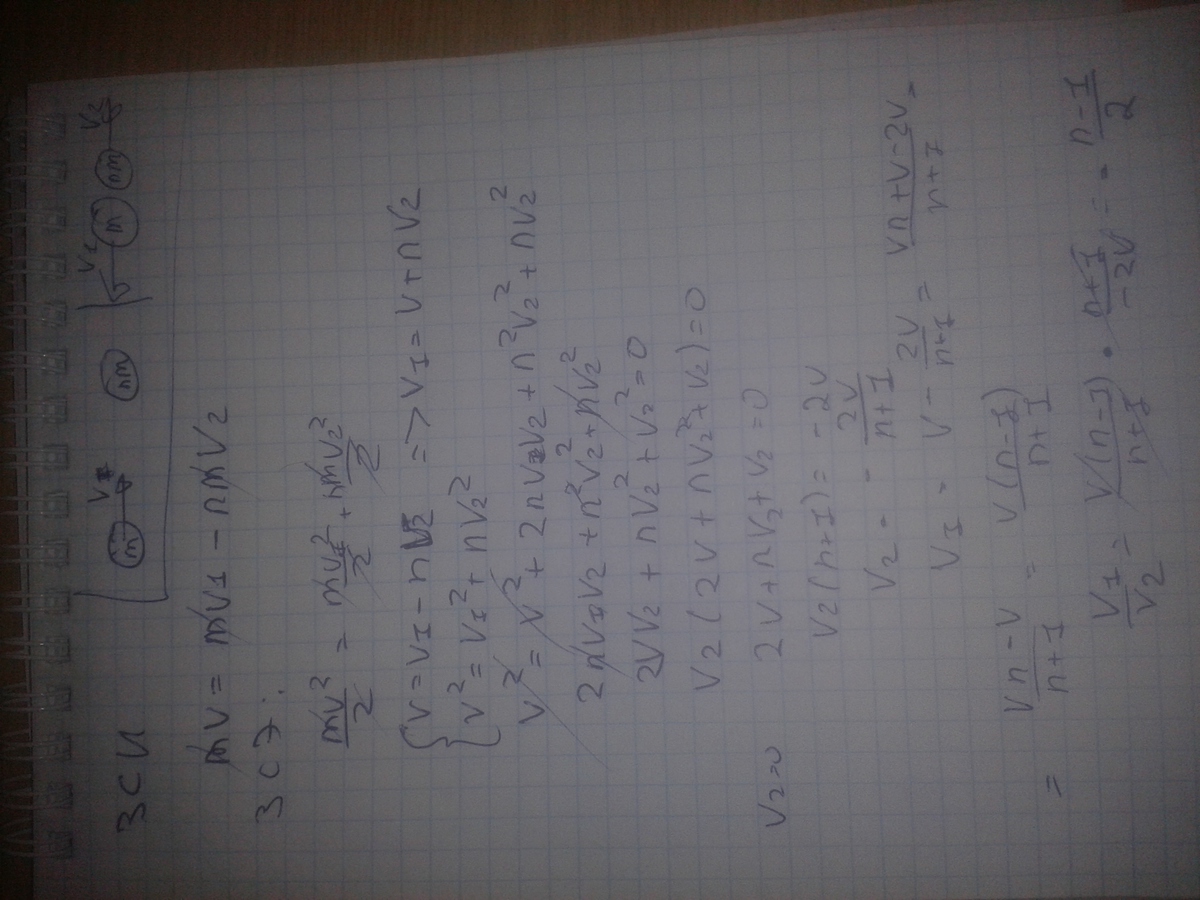 ЗСИ
m v1 nm v1 m nm v2
mv = mv1 - nmv2
ЗСЭ:
mv²/2 = mv1²/2 + nmv2²/2
{ v = v1 - nv2 => v1 = v + nv2
{ v² = v1² + nv2²
v² = v² + 2nv1v2 + n²v2² + nv2²
2nv1v2 + n²v2² + nv2²
2vv2 + nv2² + v2² = 0
v2(2v + nv2 + v2) = 0
v2=0 2v + nv2 + v2 = 0
v2(n+1) = -2v
v2 = - 2v/n+1
v1 = v - 2v/n+1 = vn+v-2v/n+1 =
= vn-v/n+1 = v(n-1)/n+1
v1/v2 = v(n-1)/n+1 · n+1/-2v = - n-1/2